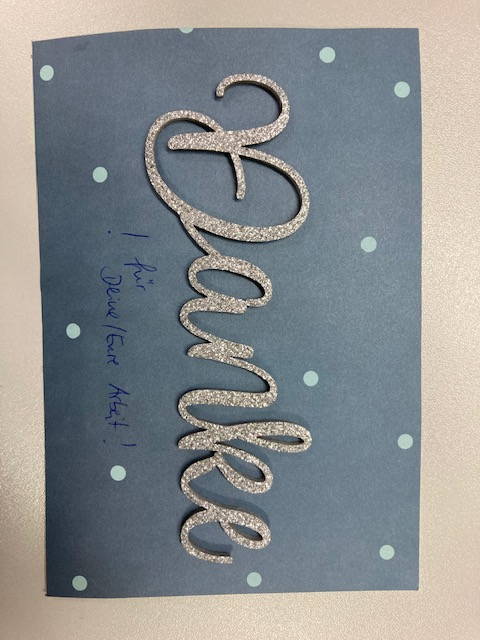 Danke
! für
Deine/Eure Arbeit!